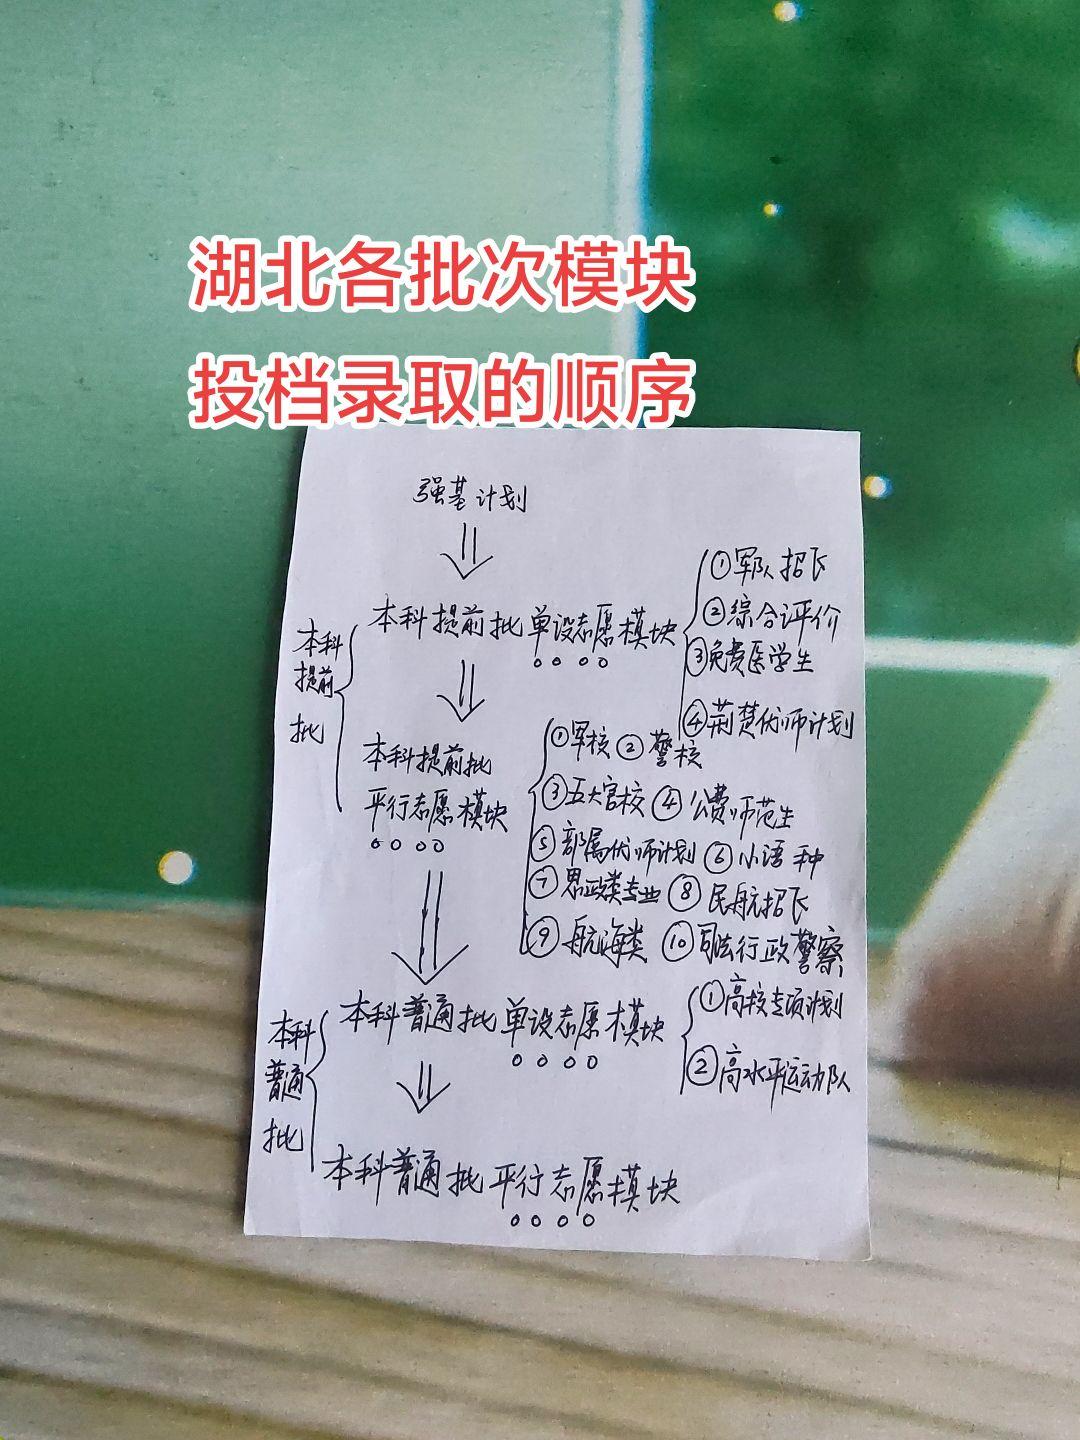 湖北各批次模块
投档录取的顺序
强基计划
本科提前批
本科提前批单设志愿模块
①军队招飞
②综合评价
③免费医学生
④荆楚优师计划
本科提前批
平行志愿模块
①军校 ②警校
③五大官校 ④公费师范生
⑤部属优师计划 ⑥小语种
⑦思政类专业 ⑧民航招飞
⑨航海类 ⑩司法行政警察
本科普通批
本科普通批单设志愿模块
①高校专项计划
②高水平运动队
本科普通批平行志愿模块